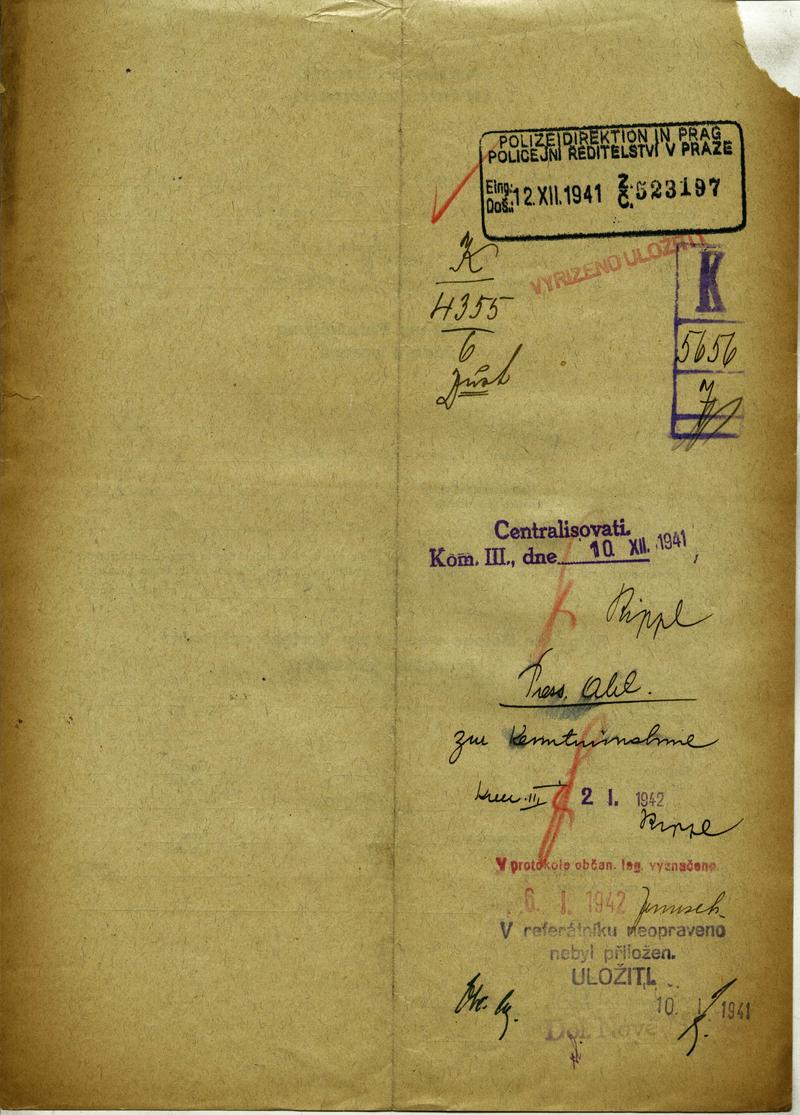 POLIZEIDIREKTION IN PRAG
POLICEJNÍ ŘEDITELSTVÍ V PRAZE
Eing.: Doš.: 12. XII. 1941 Z. Č. 523197
VYŘÍZENO ULOŽITI
K
4355
6
K
5656
7
Centralisovati.
Kom. III., dne 10. XII. 1941
Rippl
Press. Abl.
zur Kenntnisnahme
III 2 I. 1942
Rippl
V protokole občan. leg. vyznačeno
6. I. 1942
V referátníku neopraveno
nebyl přiložen.
ULOŽITI.
10. I. 1941